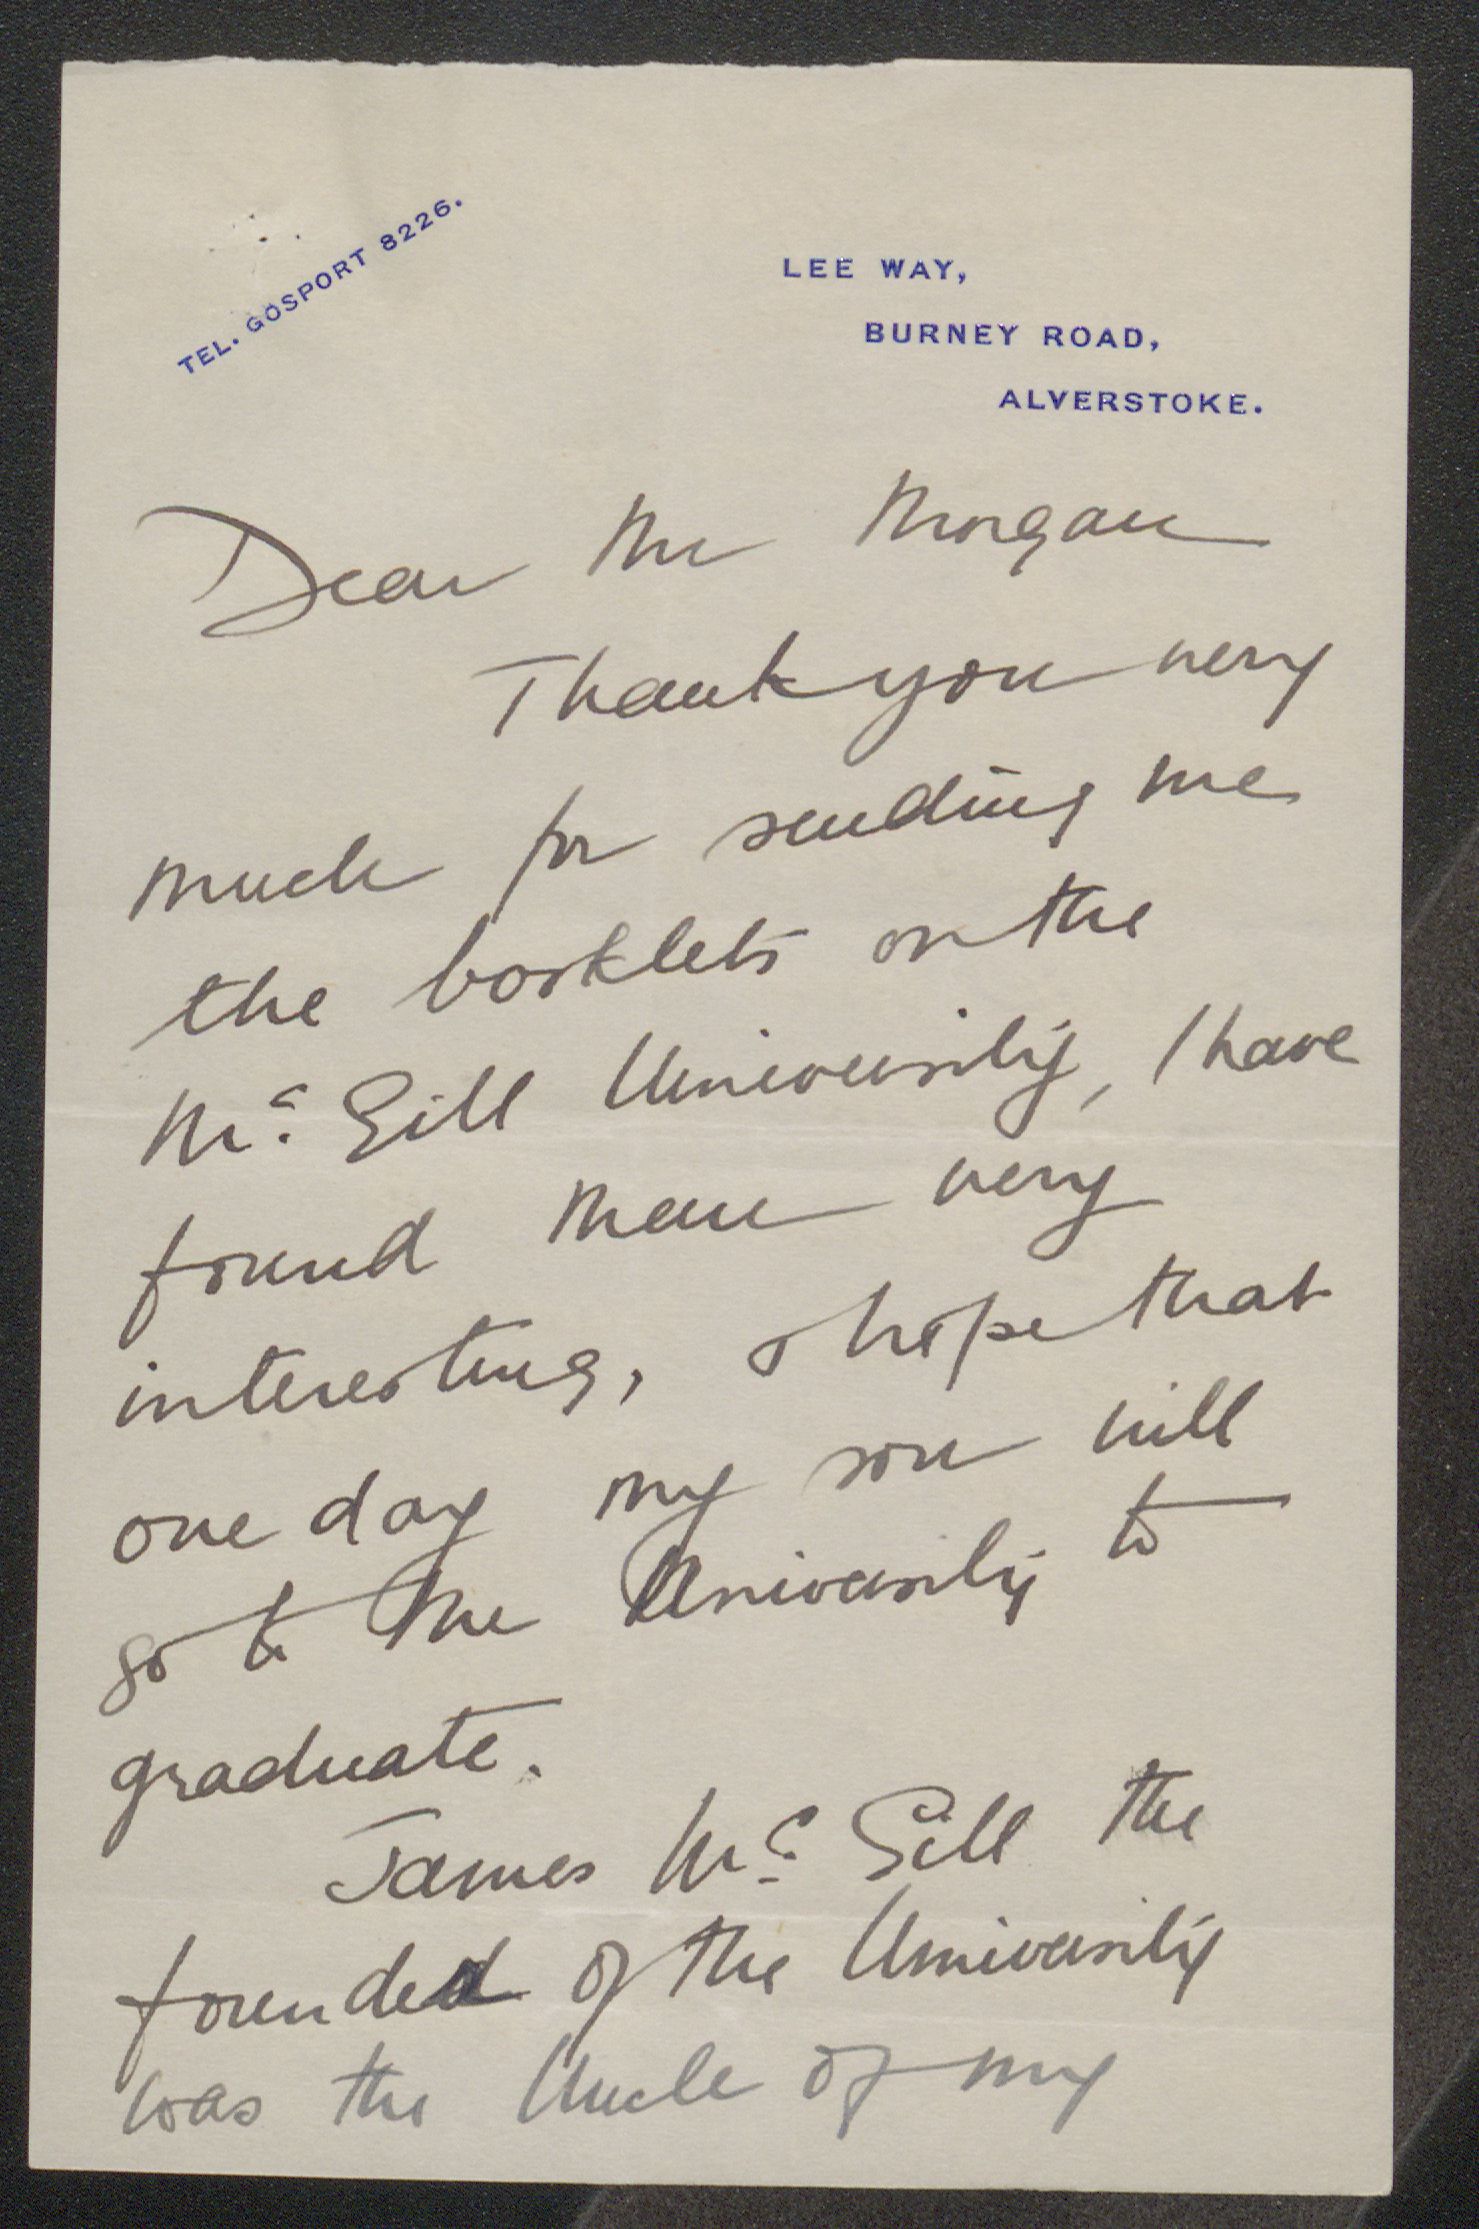 TEL. GOSPORT 8226.
LEE WAY,
BURNEY ROAD,
ALVERSTOKE.
Dear Mr Morgan
Thank you very
much for sending me
the booklets on the
Mc. Gill University, I have
found them very
interesting, & hope that
one day my son will
go to the University to
graduate.
James Mc. Gill the
founded of the University
was the Uncle of my